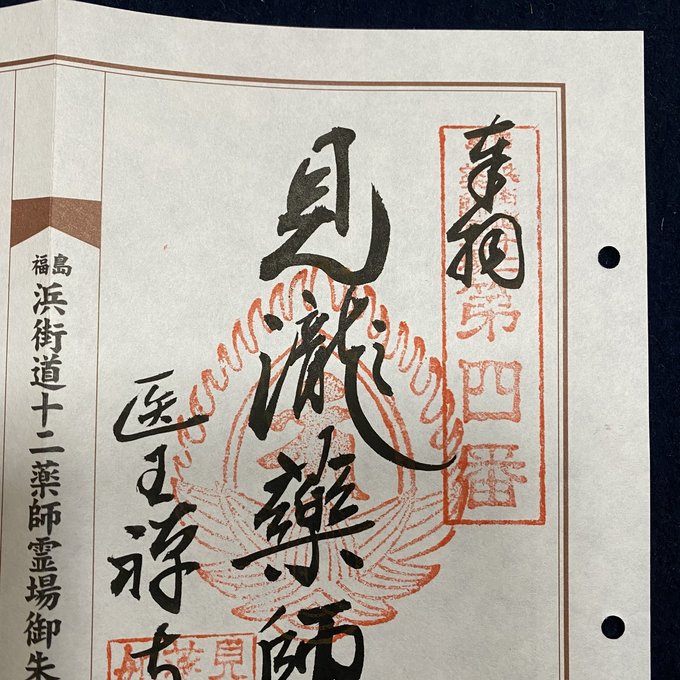 奉拝
第四番
見瀧藥師
医王禅寺
福島
浜街道十二薬師霊場御朱